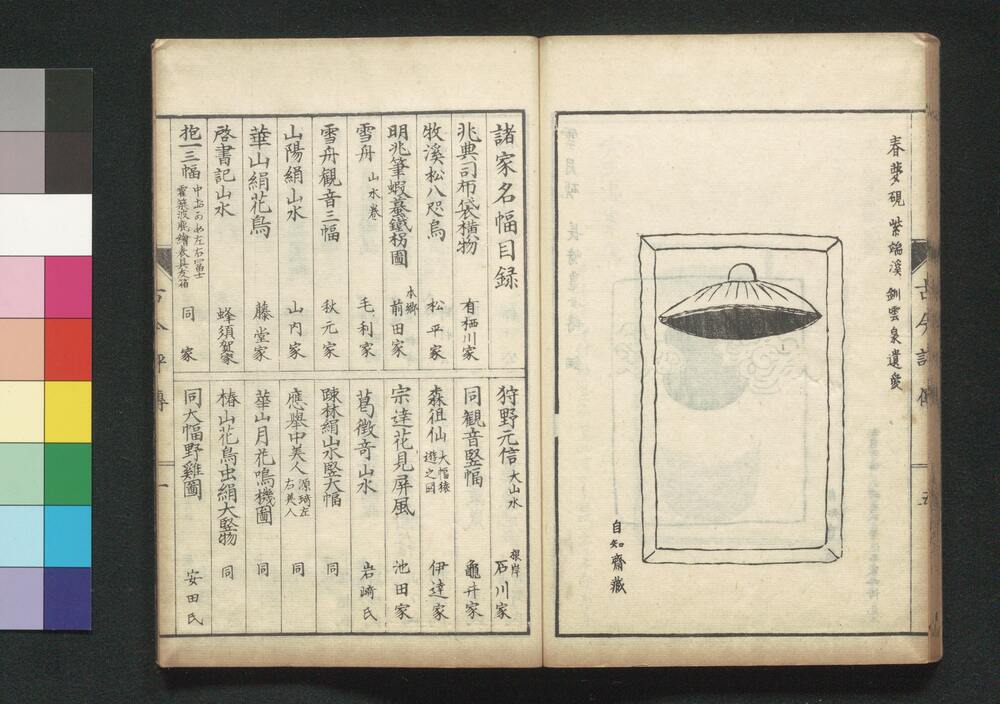 春夢硯 紫端溪 釧雲泉遺愛
自知齋藏
古今評傳
五
諸家名幅目録
兆典司布袋横物 有栖川家
牧溪松八咫鳥 松平家
明兆筆蝦蟇鐵拐圖 本郷 前田家
雪舟 山水卷 毛利家
雪舟観音三幅 秋元家
山陽絹山水 山内家
華山絹花鳥 藤堂家
啓書記山水 蜂須賀家
抱一三幅 中 左右冨士 筑波 同家
狩野元信 大山水 根岸 石川家
同観音竪幅 龜井家
森徂仙 大幅猿遊之図 伊達家
宗達花見屏風 池田家
葛徴奇山水 岩﨑氏
疎林絹山水竪大幅 同
應擧中美人 源琦左右美人 同
華山月花鳴機圖 同
椿山花鳥虫絹大竪物 同
同大幅野雞圖 安田氏
古今評傳
一